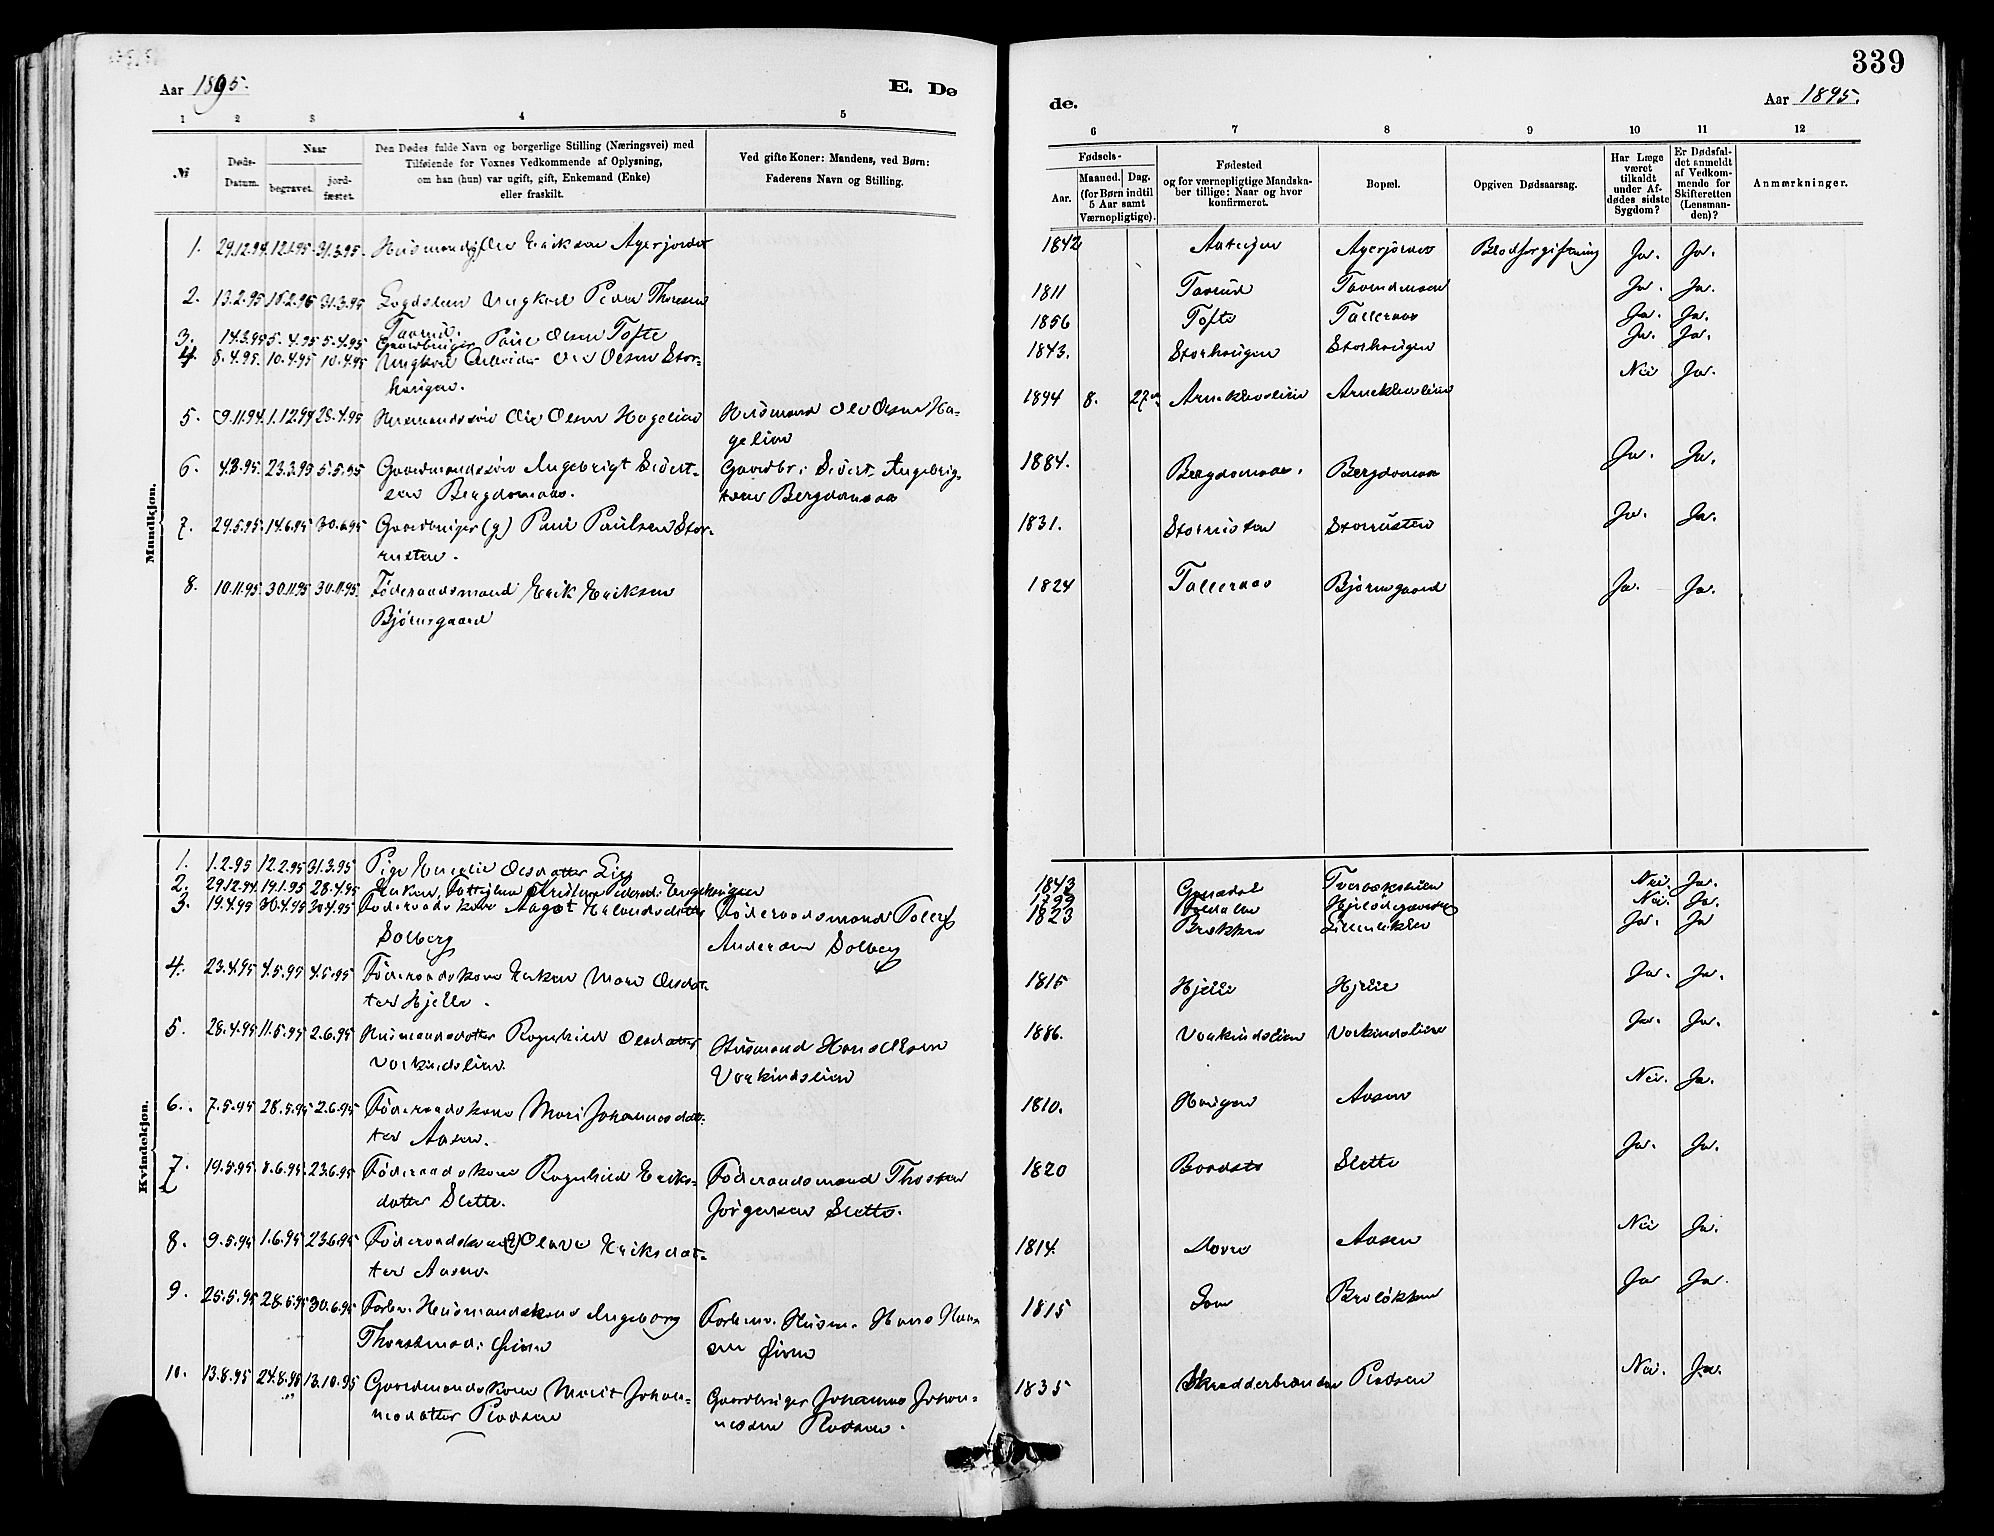 339
Aar 1895.
E. Dø
de.
Aar 1895.
1 2 3 4 5
6 7 8 9 10 11 12
№
Døds-Datum.
Naar
begravet.
jord-fæstet.
Den Dødes fulde Navn og borgerlige Stilling (Næringsvei) med
Tilføiende for Voxnes Vedkommende af Oplysning,
om han (hun) var ugift, gift, Enkemand (Enke)
eller fraskilt.
Ved gifte Koner: Mandens, ved Børn:
Faderens Navn og Stilling.
Fødsels-
Aar.
Maaned. Dag.
(for Børn indtil
5 Aar samt
Værnepligtige).
Fødested
og for værnepligtige Mandska-
ber tillige: Naar og hvor
konfirmeret.
Bopæl.
Opgiven Dødsaarsag.
Har Læge
været
tilkaldt
under Af-
dødes sidste
Sygdom?
Er Dødsfal-
det anmeldt
af Vedkom-
mende for
Skifteretten
(Lensman-
den)?
Anmærkninger.
Mandkjøn.
1. 29.12.94 12.1.95 31.3.95 Eriksen Agerjordet 1842 Blodforgiftning Ja. Ja.
2. 13.2.95 31.3.95 Ungkarl Peder Thoresen 1811 Taarud Ja. Ja.
Taarud.
3. 14.3.95 5.4.95 5.4.95 Gaardbruger Paul Olsen Tofte 1856 Tofte Talleraas Ja. Ja.
4. 8.4.95. 10.4.95 10.4.95 Ungkarl Arbeider Ole Olsen Stor- 1843. Storhaugen Storhaugen Ja. Ja.
haugen.
5. 9.11.94 1.12.94 28.4.95 Husmandssøn Ole Olsen Hagelien Husmand Ole Olsen Ha- 1894 8. 27de Arneklevslien Arneklevslien Nei Ja.
gelien
6. 4.3.95. 23.3.95 5.5.95 Gaardmandssøn Ingebrigt Sivert- Gaardbr: Sivert Ingebrig- 1884. Bergdømaas. Bergdømaa Ja. Ja.
sen Bergdømaas. tsen Bergdømaa
7. 29.5.95. 14.6.95 30.6.95 Gaardbruger (g) Paul Paulsen Stor- 1831. Storrusten Storrusten Ja. Ja.
rusten.
8. 10.11.95. 30.11.95 30.11.95. Føderaadsmand Erik Eriksen 1824 Talleraas Bjørnsgaard Ja. Ja.
Bjørnsgaard
Kvindekjøn.
1. 1.2.95 12.2.95 31.3.95 Pige Olsdatter Lie 1843 Nei. Ja.
2. 29.12.94 19.1.95 28.4.95 Enken, 1799 Nei. Ja.
3. 19.4.95 30.4.95 30.4.95 Føderaadskone Aagot Erlandsdatter Føderaadsmand Tollef 1823 Brækken Ja. Ja
Solberg Andersen Solberg
4. 23.4.95 4.5.95 4.5.95 Føderaadskone Enken Mari Olsdat- 1815 Hjelle Hjelle Ja. Ja.
ter Hjelle.
5. 28.4.95 11.5.95 2.6.95 Husmandsdatter Ragnhild Olsdatter Husmand 1886. Vorkindslien Vorkindslien Ja. Ja.
Vorkindslien. Vorkindslien
6. 7.5.95 28.5.95 2.6.95 Føderaadskone Mari Johannesdat- 1810. Haugen Aasen Nei. Ja.
ter Aasen.
7. 19.5.95. 8.6.95. 23.6.95 Føderaadskone Ragnhild Eriks- Føderaadsmand Thosten 1820 Slette Ja. Ja.
datter Slette. Jørgensen Slette.
8. 9.5.95 1.6.95 23.6.95 Føderaadskone (E) Olava Eriksdat- 1814. Dovre Aasen Nei Ja.
ter Aasen.
9. 25.5.95 28.5.95 30.6.95 Forhv. Husmandskone Ingeborg Forhenv. Husm. Hans Han- 1815 Ja Ja.
Thorstensd: Øien sen Øien
10. 13.8.95 24.8.95 13.10.95 Gaardmandskone Marit Johan- Gaardbruger Johannes Johan- 1835 Skrædderbraaten Plodsen Nei. Ja.
nesdatter Plodsen nesen Plodsen.